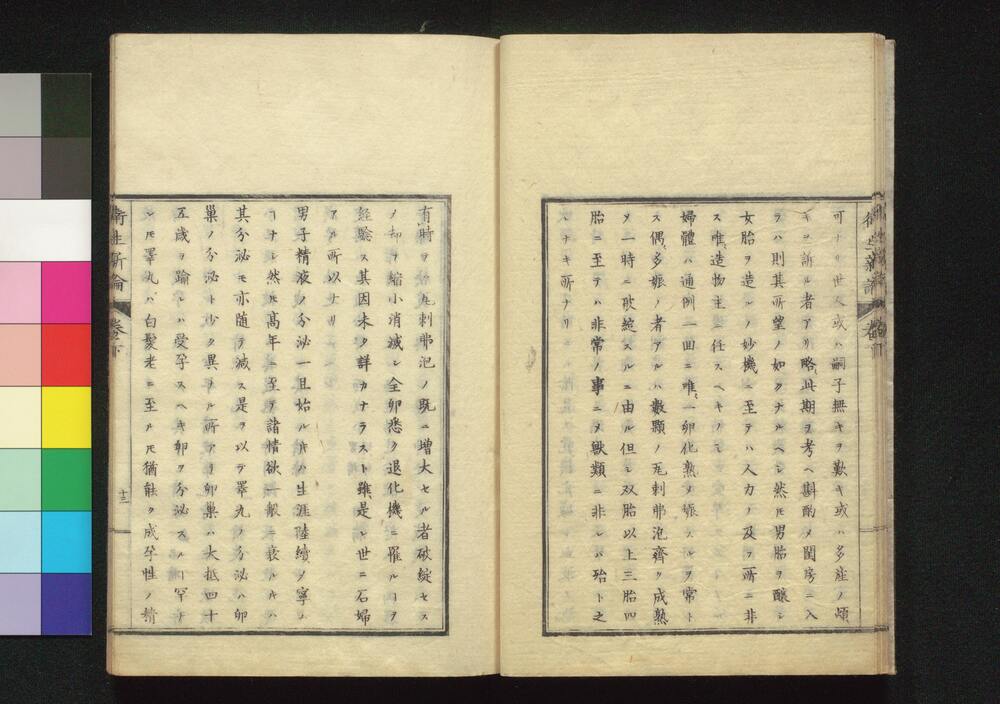 可ナリ世人或ハ嗣子無キヲ歎キ或ハ多産ノ煩
キヲ訴ル者アリ略此期ヲ考ヘ斟酌メ閨房ニ入
ラハ則其所望ノ如クナルヘシ然𪜈男胎ヲ醸シ
女胎ヲ造ルノ妙機ニ至テハ人力ノ及フ所ニ非
ス唯造物主ニ任スヘキノミ
婦體ハ通例一曲ニ唯一卵化熟メ娠スルヲ常ト
ス偶多娠ノ者アルハ數顆ノ瓦刺弗泡齊ク成熟
メ一時ニ破綻スルニ由ル但シ双胎以上三胎四
胎ニ至テハ非常ノ事ニメ獸類ニ非レバ殆ト之
ナキ所ナリ
衛生新論 卷下
有時ヲ瓦刺弗泡ノ既ニ増大セル者破綻セス
ノ却テ縮小消滅シ全卵悉ク退化機ニ罹ルヿヲ
經驗ス其因未タ詳カナラスト雖是レ世ニ石婦
アル所以ナリ
男子精液ノ分泌一旦始ルキハ生涯陸續メ寧ノ
ヿナシ然𪜈高年ニ至テ諸情欲一般ニ衰ルキハ
其分泌モ亦随テ減ス是ヲ以テ睪丸ノ分泌ハ卵
巢ノ分泌ト少ク異ナル所アリ卵巢ハ大抵四十
五歳ヲ踰レハ受孕スヘキ卵ヲ分泌スルヿ罕ナ
レ𪜈睪丸ハ白髮老ニ至ル𪜈猶能ク成孕性ノ精
衛生新論 卷下 十三